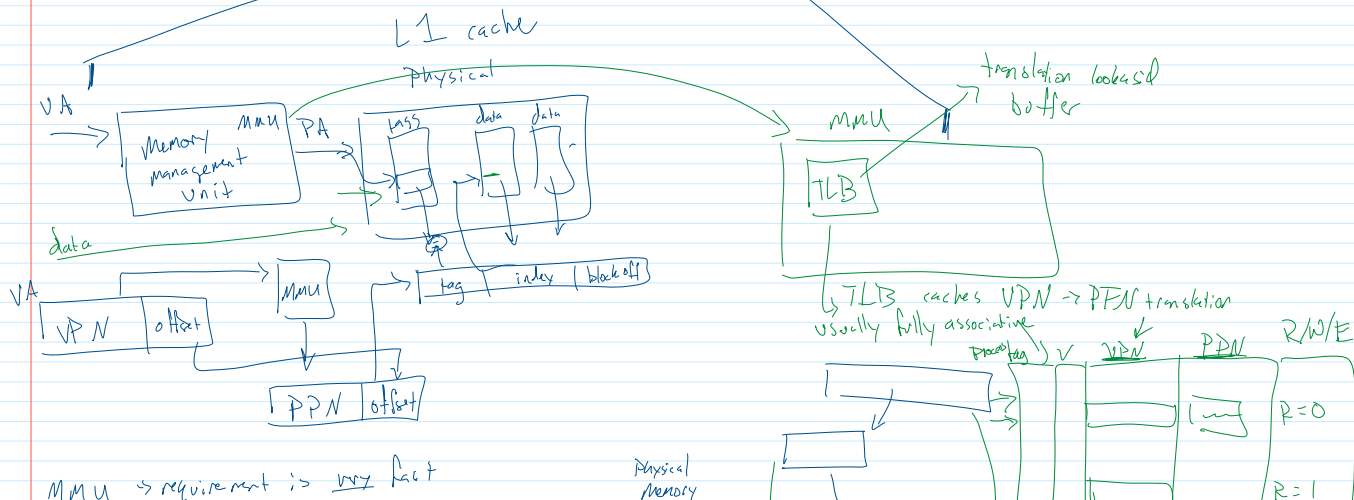 L1 cache
Physical
VA
MMU
Memory
management
unit
PA
tags
data
data
data
=
tag
index
block off
VA
VPN
offset
MMU
PPN
offset
MMU -> requirement is very fast
translation lookasid
buffer
MMU
TLB
TLB caches VPN -> PFN translation
usually fully associative
Process tag
V
VPN
PPN
R/W/E
R=0
R=1
Physical
Memory